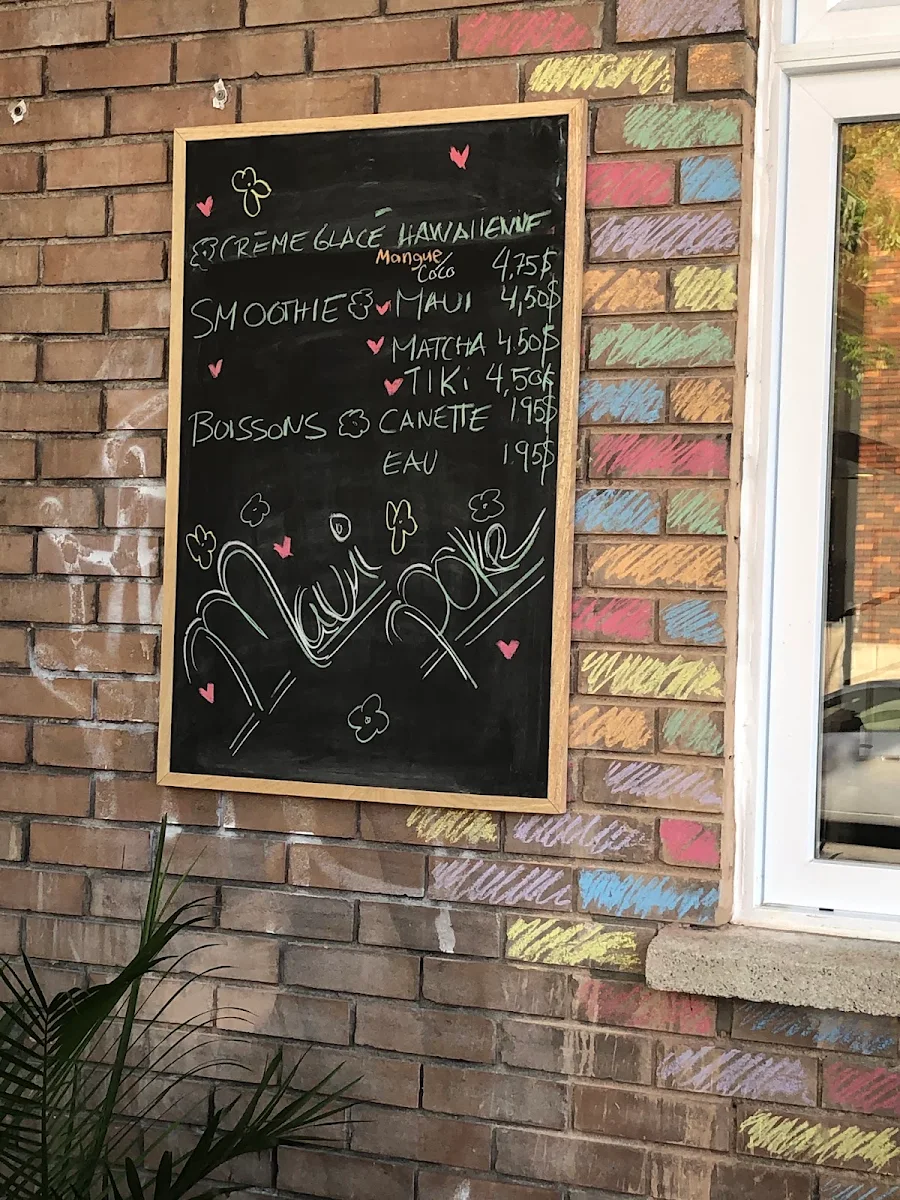 CRÈME GLACÉ HAWAIIENNE
Mangue/
Coco 4,75$
SMOOTHIE MAUI 4,50$
MATCHA 4.50$
TIKi 4,50$
BOISSONS CANETTE 1.95$
EAU 1.95$
Maui Poke